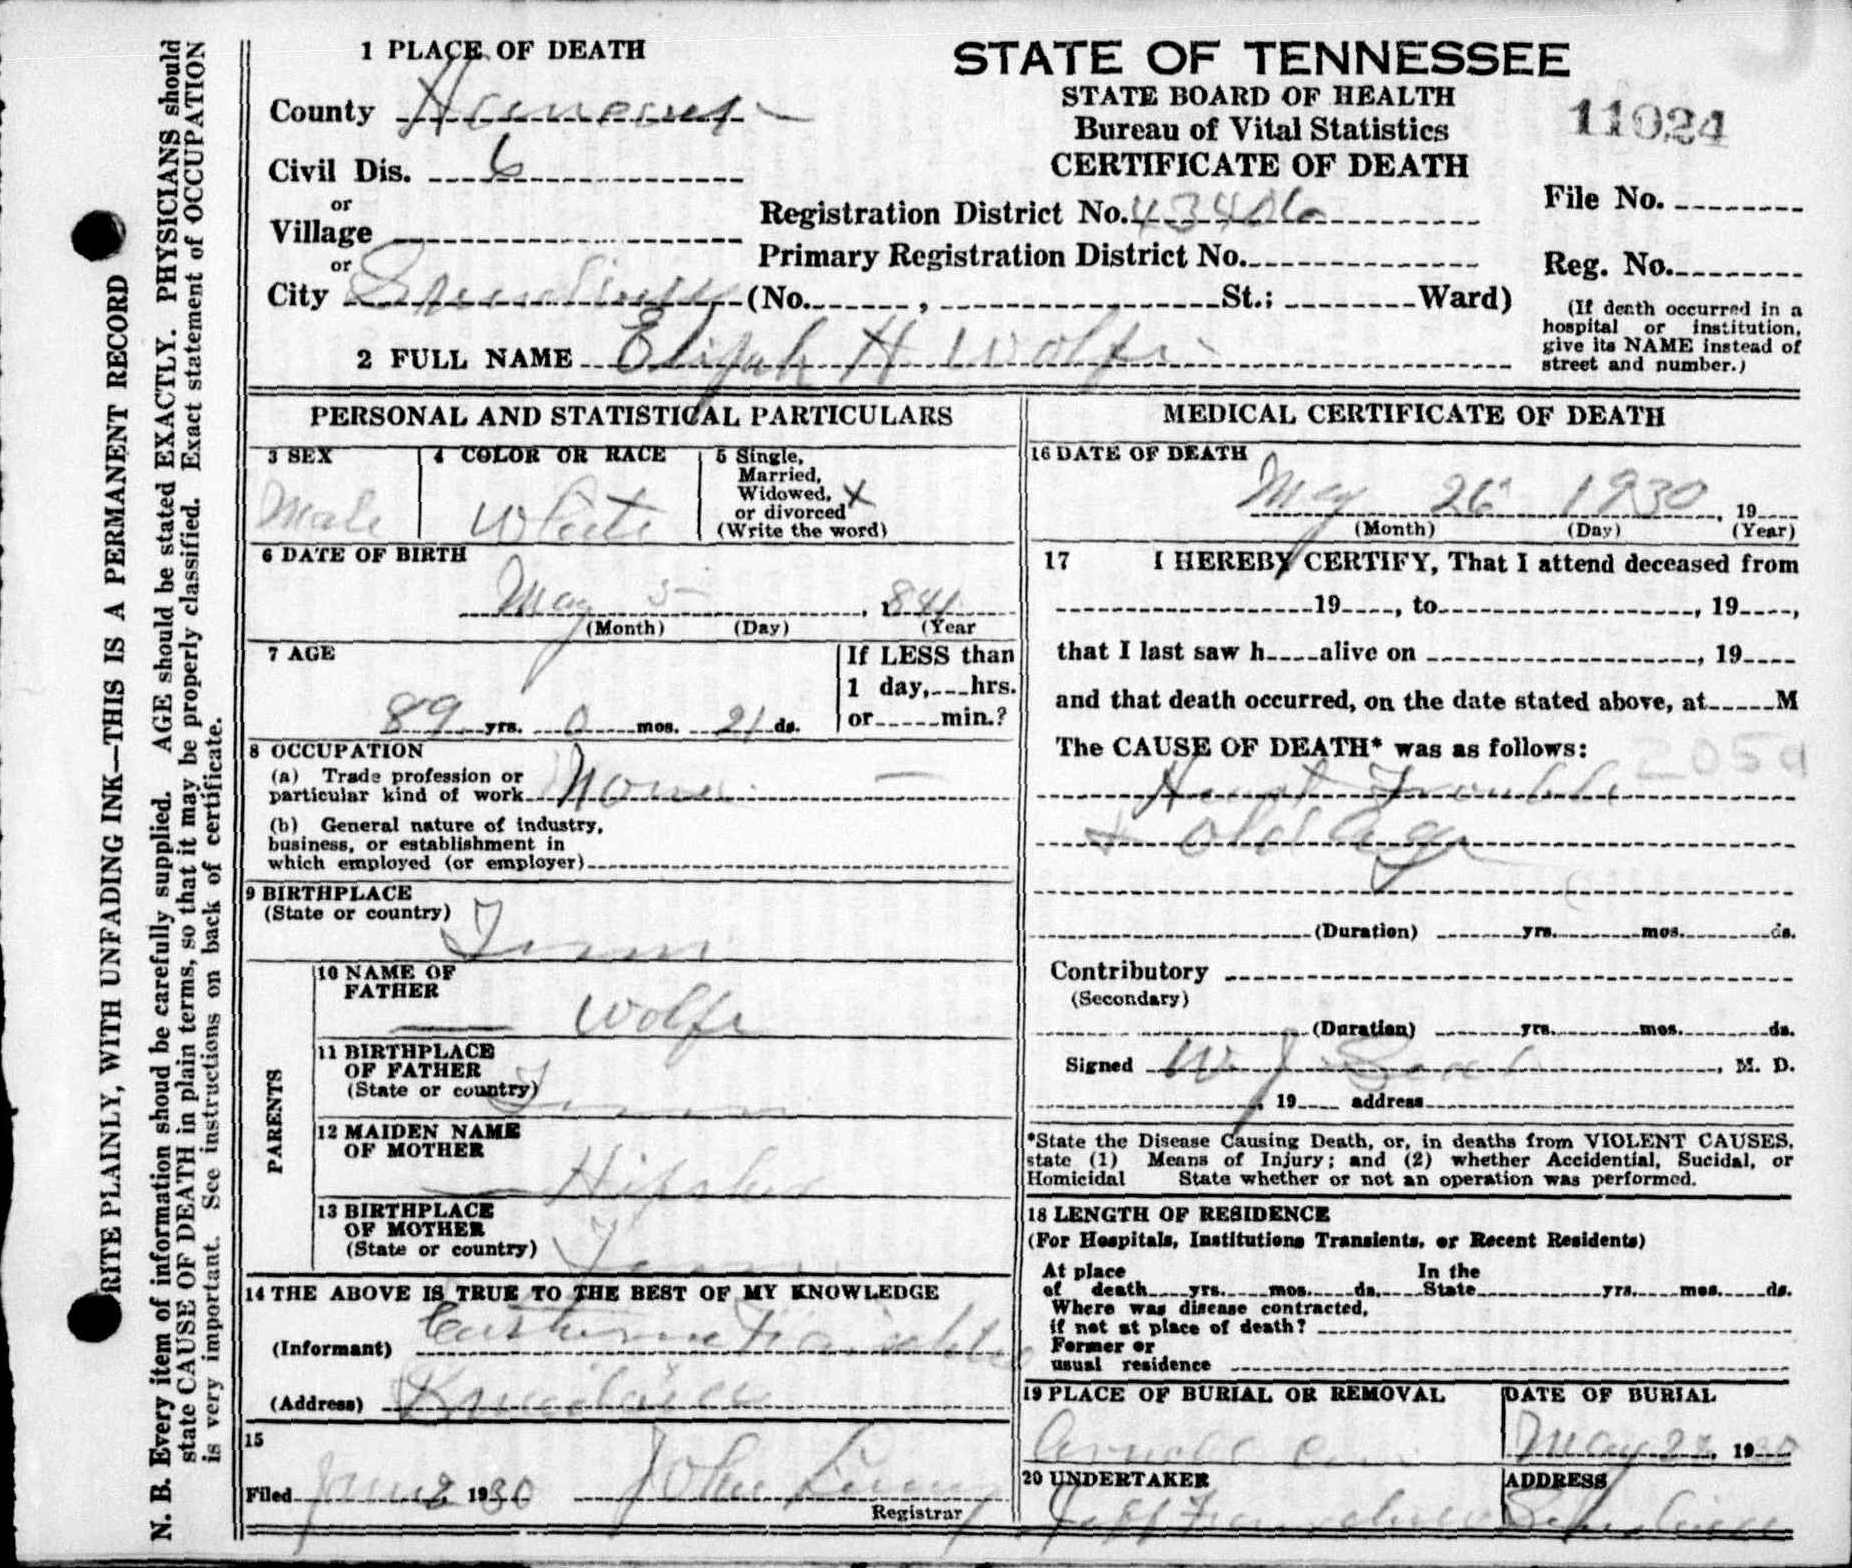 1 PLACE OF DEATH
County
Civil Dis. 6
or
Village
or
City (No. , St.; Ward)
STATE OF TENNESSEE
STATE BOARD OF HEALTH
Bureau of Vital Statistics
CERTIFICATE OF DEATH
11024
Registration District No. 43406
Primary Registration District No.
File No.
Reg. No.
(If death occurred in a
hospital or institution,
give its NAME instead of
street and number.)
2 FULL NAME Elijah H Wolfe
PERSONAL AND STATISTICAL PARTICULARS
3 SEX
Male
4 COLOR OR RACE
White
5 Single,
Married,
Widowed, X
or divorced
(Write the word)
6 DATE OF BIRTH
May 5 , 1841
(Month) (Day) (Year
7 AGE
89 yrs. 0 mos. 21 ds.
If LESS than
1 day, hrs.
or min.?
8 OCCUPATION
(a) Trade profession or
particular kind of work None
(b) General nature of industry,
business, or establishment in
which employed (or employer)
9 BIRTHPLACE
(State or country)
Tenn
PARENTS
10 NAME OF
FATHER
Wolfe
11 BIRTHPLACE
OF FATHER
(State or country)
Tenn
12 MAIDEN NAME
OF MOTHER
Hipsher
13 BIRTHPLACE
OF MOTHER
(State or country)
Tenn
14 THE ABOVE IS TRUE TO THE BEST OF MY KNOWLEDGE
(Informant)
(Address)
15
Filed June 2, 1930 John
Registrar
MEDICAL CERTIFICATE OF DEATH
16 DATE OF DEATH
May 26 1930 , 19
(Month) (Day) (Year)
17 I HEREBY CERTIFY, That I attend deceased from
19 , to , 19 ,
that I last saw h alive on , 19
and that death occurred, on the date stated above, at M
The CAUSE OF DEATH* was as follows:
205a
Heart Trouble
+ old Age
(Duration) yrs. mos. ds.
Contributory
(Secondary)
(Duration) yrs. mos. ds.
Signed W. J. , M. D.
, 19 address
*State the Disease Causing Death, or, in deaths from VIOLENT CAUSES,
state (1) Means of Injury; and (2) whether Accidential, Sucidal, or
Homicidal State whether or not an operation was performed.
18 LENGTH OF RESIDENCE
(For Hospitals, Institutions Transients, or Recent Residents)
At place In the
of death yrs. mos. ds. State yrs. mos. ds.
Where was disease contracted,
if not at place of death?
Former or
usual residence
19 PLACE OF BURIAL OR REMOVAL
Arnold Cem
DATE OF BURIAL
May , 1930
20 UNDERTAKER
Jeff
ADDRESS
N. B. Every item of information shoud be carefully supplied. AGE should be stated EXACTLY. PHYSICIANS should
state CAUSE OF DEATH in plain terms, so that it may be properly classified. Exact statement of OCCUPATION
is very important. See instructions on back of certificate.
RITE PLAINLY, WITH UNFADING INK—THIS IS A PERMANENT RECORD